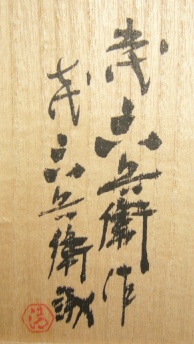 六兵衛作
六兵衛識
清